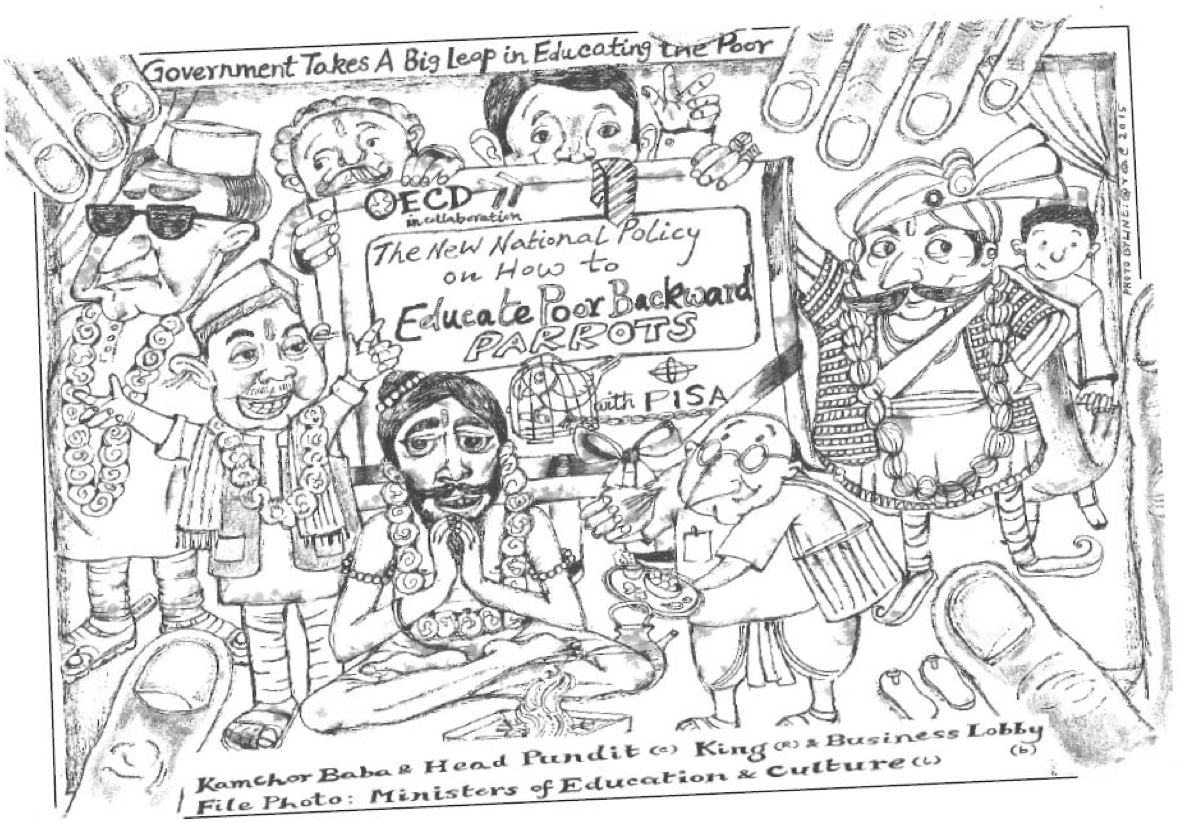 Government Takes A Big Leap in Educating the Poor
OECD
in collaboration
The New National Policy
on How to
Educate Poor Backward
PARROTS
with PISA
Kamchor Baba & Head Pundit (c) King (R) & Business Lobby (b)
File Photo: Ministers of Education & Culture (L)